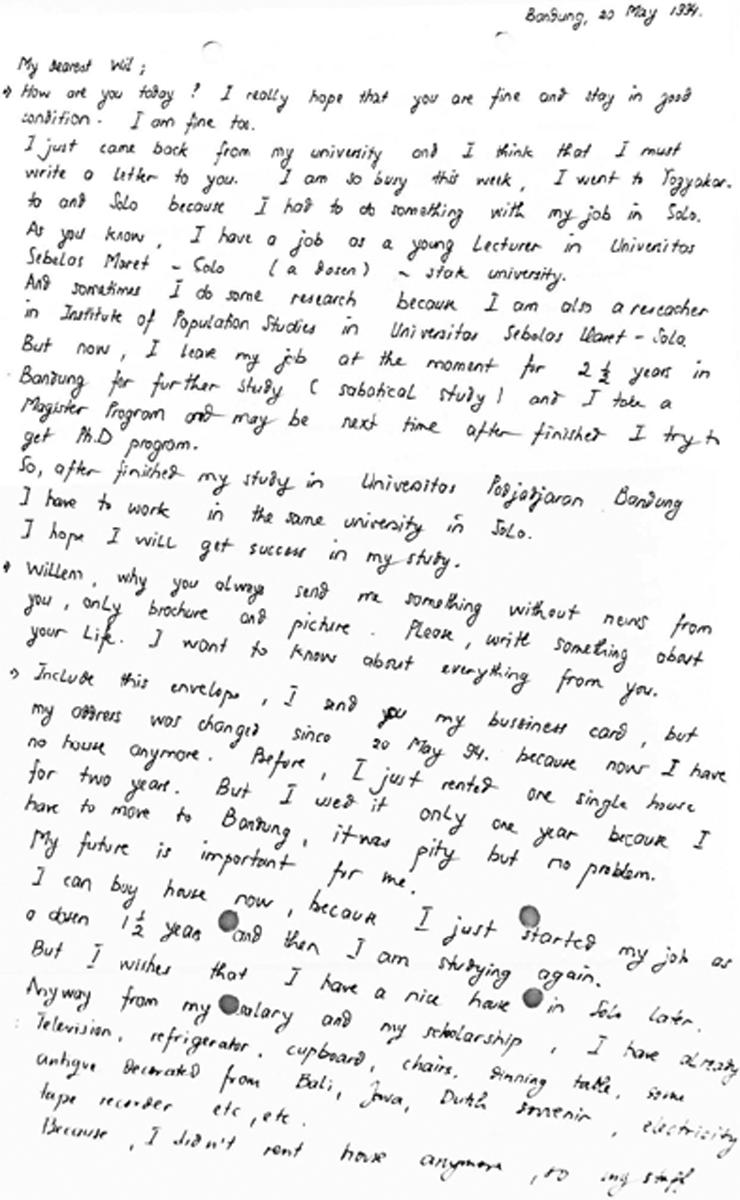 Bandung, 20 May 1994.
My dearest Wil ;
→ How are you today ? I really hope that you are fine and stay in good
condition. I am fine too.
I just came back from my university and I think that I must
write a letter to you. I am so busy this week, I went to Yogyakar-
ta and Solo because I had to do something with my job in Solo.
As you know, I have a job as a young Lecturer in Universitas
Sebelas Maret - Solo (a dosen) - state university.
And sometimes I do some research because I am also a reseacher
in Institute of Population Studies in Universitas Sebelas Maret - Solo.
But now, I leave my job at the moment for 2 1/2 years in
Bandung for further study ( sabatical study ) and I take a
Magister Program and may be next time after finished I try to
get Ph.D program.
So, after finished my study in Universitas Padjadjaran Bandung
I have to work in the same university in Solo.
I hope I will get success in my study.
→ Willem, why you always send me something without news from
you, only brochure and picture. Please, write something about
your Life. I want to know about everything from you.
→ Include this envelope, I send you my bussiness card, but
my address was changed since 20 May 94. because now I have
no house anymore. Before, I just rented one single house
for two years. But I used it only one year because I
have to move to Bandung, it was pity but no problem.
My future is important for me.
I can buy house now, because I just started my job as
a dosen 1 1/2 years and then I am studying again.
But I wishes that I have a nice house in Solo later.
Anyway from my salary and my scholarship, I have already
: Television, refrigerator, cupboard, chairs, dinning table, some
antique decorated from Bali, Java, Dutch souvenir, electricity
tape recorder etc, etc.
Because, I didn't rent house anymore, so my stuff